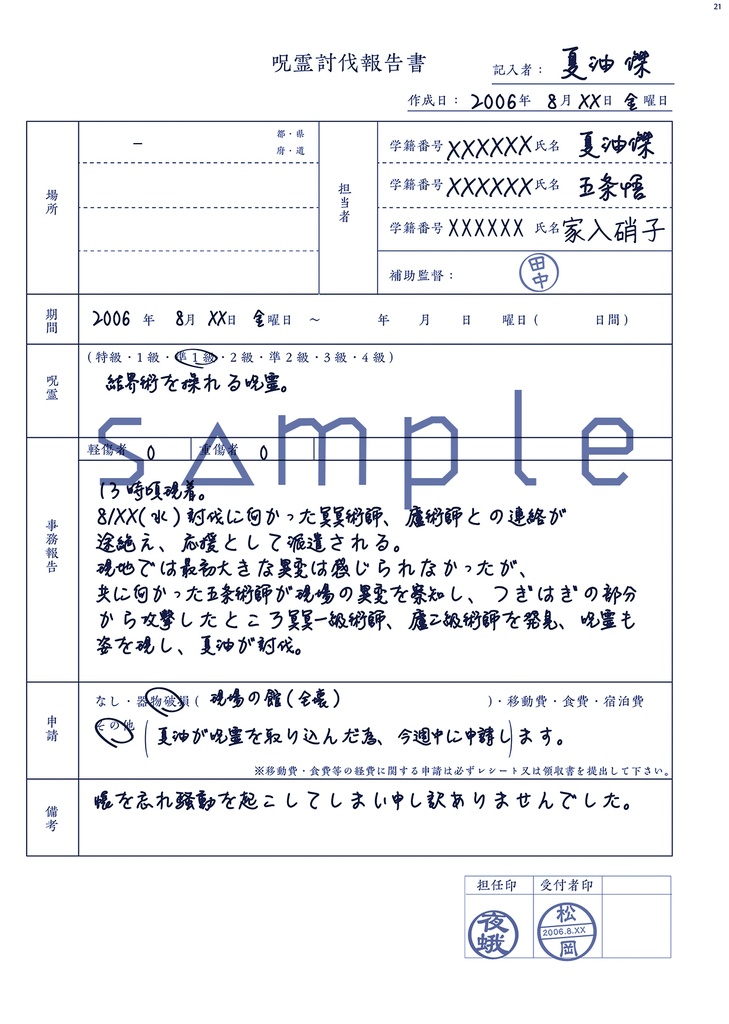 21
呪霊討伐報告書
記入者： 夏油 傑
作成日： 2006年 8月 XX日 金曜日
場所
－ 都・県
府・道
担当者
学籍番号 XXXXXX 氏名 夏油傑
学籍番号 XXXXXX 氏名 五条悟
学籍番号 XXXXXX 氏名 家入硝子
補助監督： 田中
期間
2006 年 8月 XX日 金曜日 ～ 年 月 日 曜日（ 日間）
呪霊
（特級・1級・準1級・2級・準2級・3級・4級）
結界術を操れる呪霊。
sample
軽傷者 0 重傷者 0
事務報告
13時頃現着。
8/XX(水)討伐に向かった冥冥術師、庵術師との連絡が
途絶え、応援として派遣される。
現地では最初大きな異変は感じられなかったが、
共に向かった五条術師が現場の異変を察知し、つぎはぎの部分
から攻撃したところ冥冥一級術師、庵二級術師を発見、呪霊も
姿を現し、夏油が討伐。
申請
なし・器物破損（ 現場の館(全壊) ）・移動費・食費・宿泊費
その他（夏油が呪霊を取り込んだ為、今週中に申請します。）
※移動費・食費等の経費に関する申請は必ずレシート又は領収書を提出して下さい。
備考
帳を忘れ騒動を起こしてしまい申し訳ありませんでした。
担任印 受付者印
夜蛾
松
2006.8.XX
岡